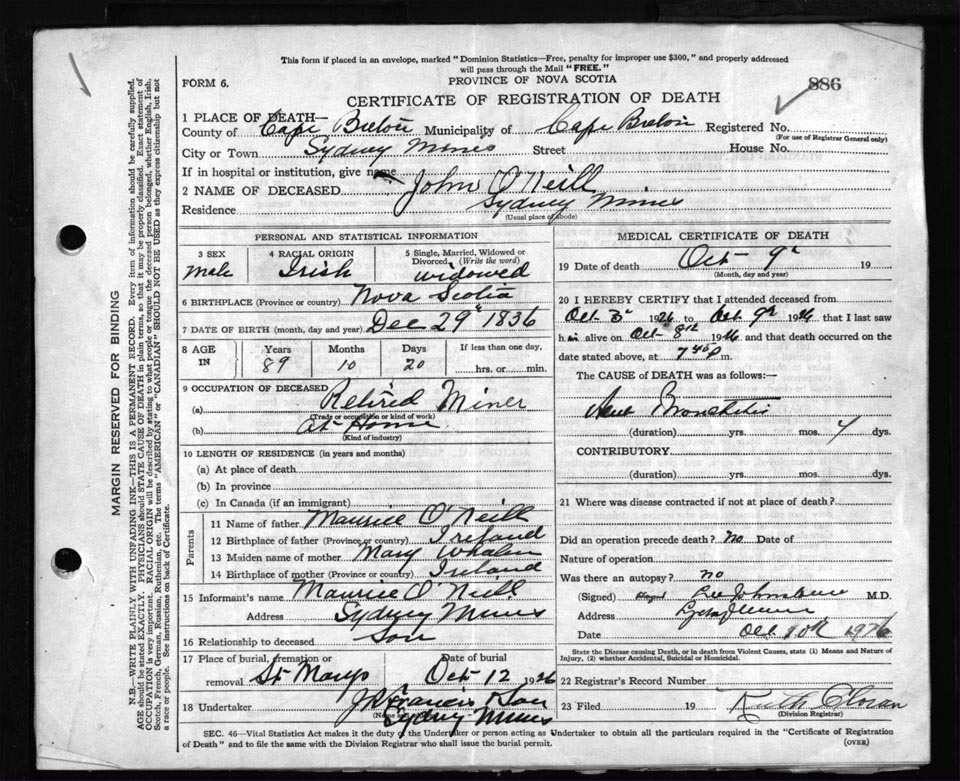 This form if placed in an envelope, marked "Dominion Statistics—Free, penalty for improper use $300," and properly addressed
will pass through the Mail "FREE."
FORM 6.
PROVINCE OF NOVA SCOTIA
886
CERTIFICATE OF REGISTRATION OF DEATH
1 PLACE OF DEATH—
County of Cape Breton Municipality of Cape Breton Registered No.
(For use of Registrar General only)
City or Town Sydney Mines Street House No.
If in hospital or institution, give name
2 NAME OF DECEASED John O'Neill
Residence Sydney Mines
(Usual place of abode)
PERSONAL AND STATISTICAL INFORMATION
3 SEX Male
4 RACIAL ORIGIN Irish
5 Single, Married, Widowed or Divorced. (Write the word) widowed
6 BIRTHPLACE (Province or country) Nova Scotia
7 DATE OF BIRTH (month, day and year) Dec 29 1836
8 AGE IN
Years Months Days If less than one day,
89 10 20 hrs. or min.
9 OCCUPATION OF DECEASED
(a) Retired Miner
(Trade or occupation or kind of work)
(b) At Home
(Kind of industry)
10 LENGTH OF RESIDENCE (in years and months)
(a) At place of death
(b) In province
(c) In Canada (if an immigrant)
Parents
11 Name of father Maurice O'Neill
12 Birthplace of father (Province or country) Ireland
13 Maiden name of mother Mary Whalen
14 Birthplace of mother (Province or country) Ireland
15 Informant's name Maurice O'Neill
Address Sydney Mines
16 Relationship to deceased Son
17 Place of burial, cremation or removal St Marys
Date of burial Oct 12 1926
18 Undertaker J R Francis & Son
Sydney Mines
MEDICAL CERTIFICATE OF DEATH
19 Date of death Oct 9 19
(Month, day and year)
20 I HEREBY CERTIFY that I attended deceased from
Oct 3 1926 to Oct 9 1926 that I last saw
him alive on Oct 8 1926 and that death occurred on the
date stated above, at 7 m.
The CAUSE of DEATH was as follows:—
Bronchitis
(duration) yrs. mos. 7 dys.
CONTRIBUTORY
(duration) yrs. mos. dys.
21 Where was disease contracted if not at place of death?
Did an operation precede death? no Date of
Nature of operation
Was there an autopsy? no
(Signed) M.D.
Address
Date Oct 10th 1926
State the Disease causing Death, or in death from Violent Causes, state (1) Means and Nature of
Injury, (2) whether Accidental, Suicidal or Homicidal.
22 Registrar's Record Number
23 Filed 19 Ruth
(Division Registrar)
SEC. 46—Vital Statistics Act makes it the duty of the Undertaker or person acting as Undertaker to obtain all the particulars required in the "Certificate of Registration
of Death" and to file the same with the Division Registrar who shall issue the burial permit.
(OVER)
MARGIN RESERVED FOR BINDING
N.B.—WRITE PLAINLY WITH UNFADING INK—THIS IS A PERMANENT RECORD. Every item of information should be carefully supplied.
AGE should be stated EXACTLY. PHYSICIANS should STATE CAUSE OF DEATH in plain terms, so that it may be properly classified. Exact statement of
OCCUPATION is very important. RACIAL ORIGIN will be described by stating to what people or tongue the deceased person belonged, whether English, Irish,
Scotch, French, German, Russian, Ruthenian, etc. The terms "AMERICAN" or "CANADIAN" SHOULD NOT BE USED as they express citizenship but not
a race or people. See instructions on back of Certificate.